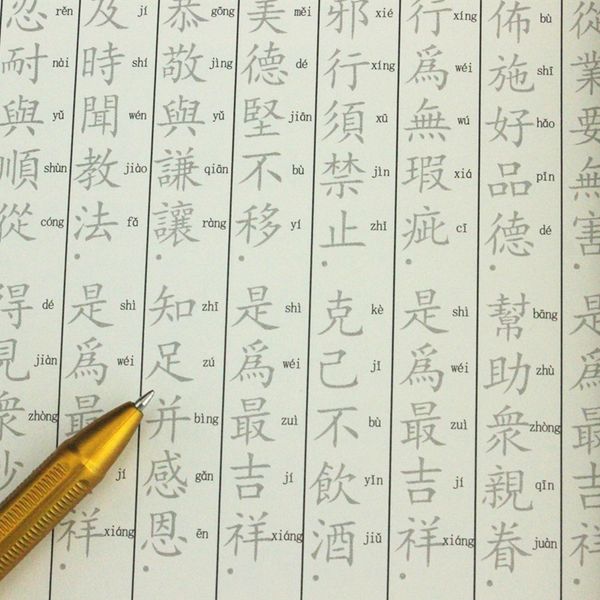 從業要無害。是爲最吉祥
佈施好品德。幫助衆親眷。
bù shī hǎo pǐn dé bāng zhù zhòng qīn juàn
行爲無瑕疵。是爲最吉祥。
xíng wéi wú xiá cī shì wéi zuì jí xiáng
邪行須禁止。克己不飲酒。
xié xíng xū jìn zhǐ kè jǐ bù yǐn jiǔ
美德堅不移。是爲最吉祥。
měi dé jiān bù yí shì wéi zuì jí xiáng
恭敬與謙讓。知足并感恩。
gōng jìng yǔ qiān ràng zhī zú bìng gǎn ēn
及時聞教法。是爲最祥。
jí shí wén jiào fǎ shì wéi jí xiáng
忍耐與順從得見衆沙
rěn nài yǔ shùn cóng dé jiàn zhòng